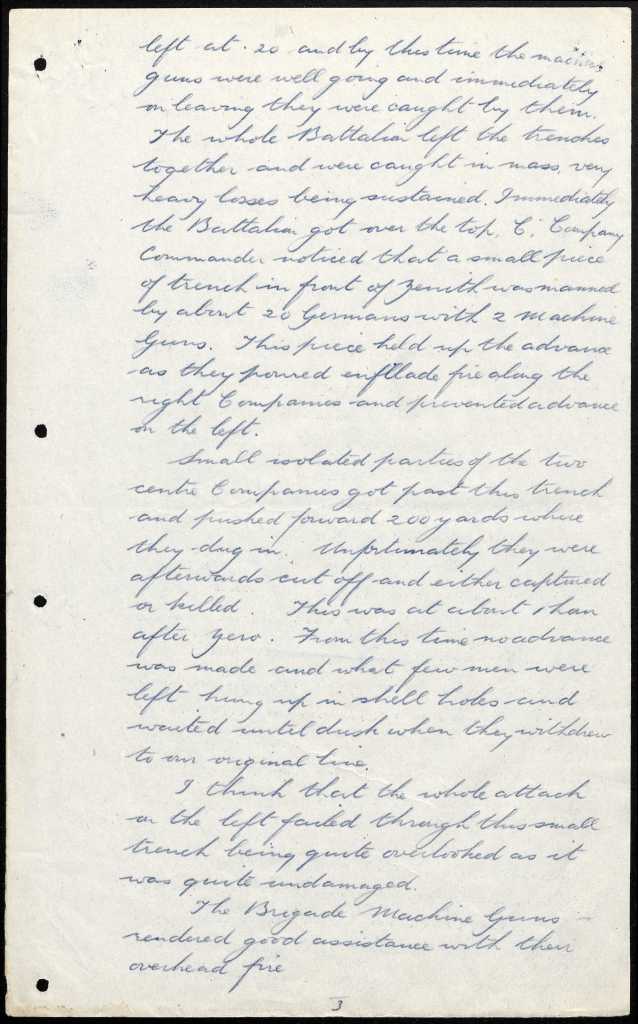 left at .20 and by this time the machine
guns were well going and immediately
on leaving they were caught by them.
The whole Battalion left the trenches
together and were caught in mass, very
heavy losses being sustained. Immediately
the Battalion got over the top, C. Company
Commander noticed that a small piece
of trench in front of Zenith was manned
by about 20 Germans with 2 Machine
Guns. This piece held up the advance
as they poured enfilade fire along the
right Companies and prevented advance
on the left.
Small isolated parties of the two
centre Companies got past this trench
and pushed forward 200 yards where
they dug in. Unfortunately they were
afterwards cut off and either captured
or killed. This was at about 1 hour
after Zero. From this time no advance
was made and what few men were
left hung up in shell holes and
waited until dusk when they withdrew
to our original line.
I think that the whole attack
on the left failed through this small
trench being quite overlooked as it
was quite undamaged.
The Brigade Machine Guns
rendered good assistance with their
overhead fire
3